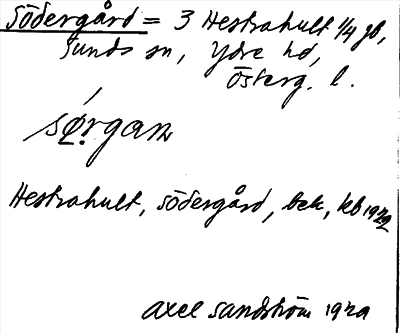 Södergård = 3 Hestrahult 1/4 gb,
Sunds sn, Ydre hd,
Österg. l.
sørgan
Hestrahult, Södergård, bek, kb 1929
Axel Sandström 1929